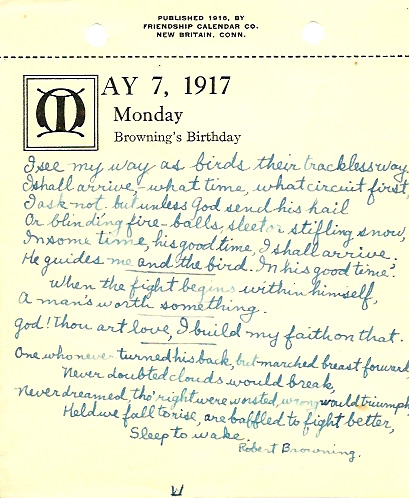 PUBLISHED 1916, BY
FRIENDSHIP CALENDAR CO.
NEW BRITAIN, CONN.
MAY 7, 1917
Monday
Browning's Birthday
I see my way as birds their trackless way
I shall arrive,- what time, what circuit first,
I ask not. but unless God send his hail
Or blinding fire-balls, sleet or stifling snow,
In some time, his good time, I shall arrive.
He guides me and the bird. In his good time.
When the fight begins within himself,
A man's worth something.
God! Thou art love, I build my faith on that.
One who never turned his back, but marched breast forward
Never doubted clouds would break,
Never dreamed, tho' right were worsted, wrong would triumph
Held we fall to rise, are baffled to fight better,
Sleep to wake.
Robert Browning.